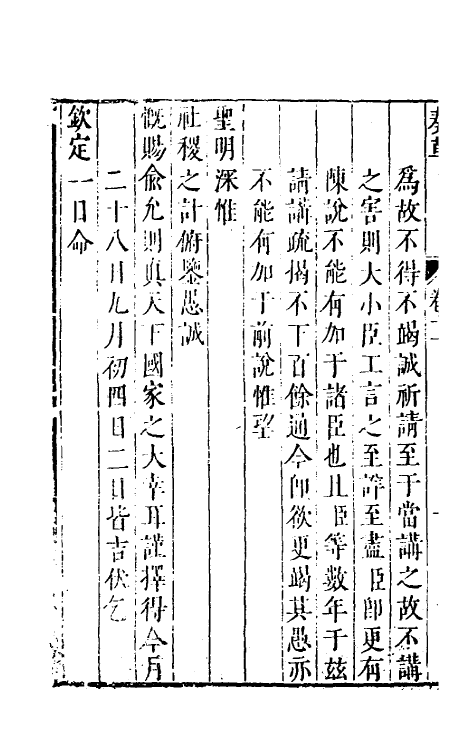 奏草
卷二
為故不得不竭誠祈請至于當講之故不講
之害則大小臣工言之至詳至盡臣即更有
陳說不能有加于諸臣也且臣等數年于茲
請講疏揭不下百餘通今即欲更竭其愚亦
不能有加于前說惟望
聖明深惟
社稷之計俯鑒愚誠
慨賜俞允則真天下國家之大幸耳謹擇得今月
二十八日九月初四日二日皆吉伏乞
欽定一日命